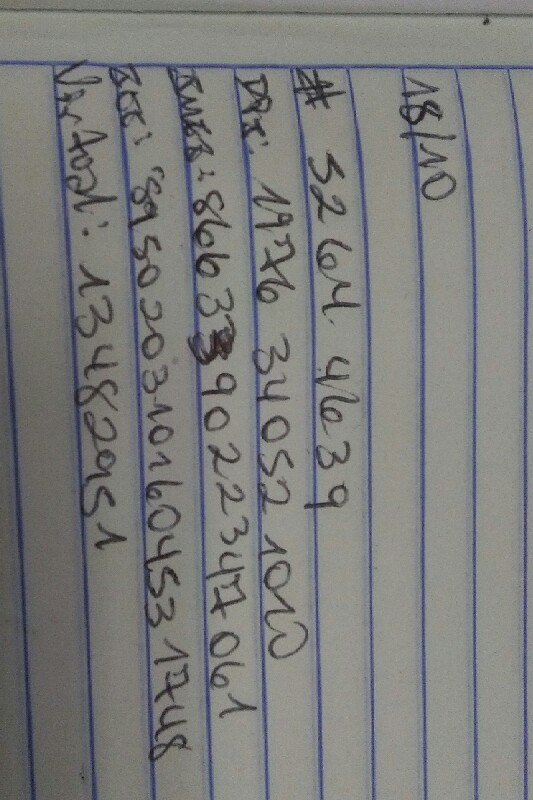 18/10
# 3264 4639
DPI: 1976 34052 1010
IMEI: 866339022347061
ICC: 8950203101604531748
Vantad: 13482951